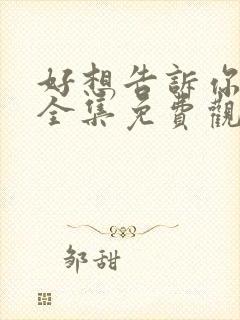 好想告訴你
全集免費觀
邹甜